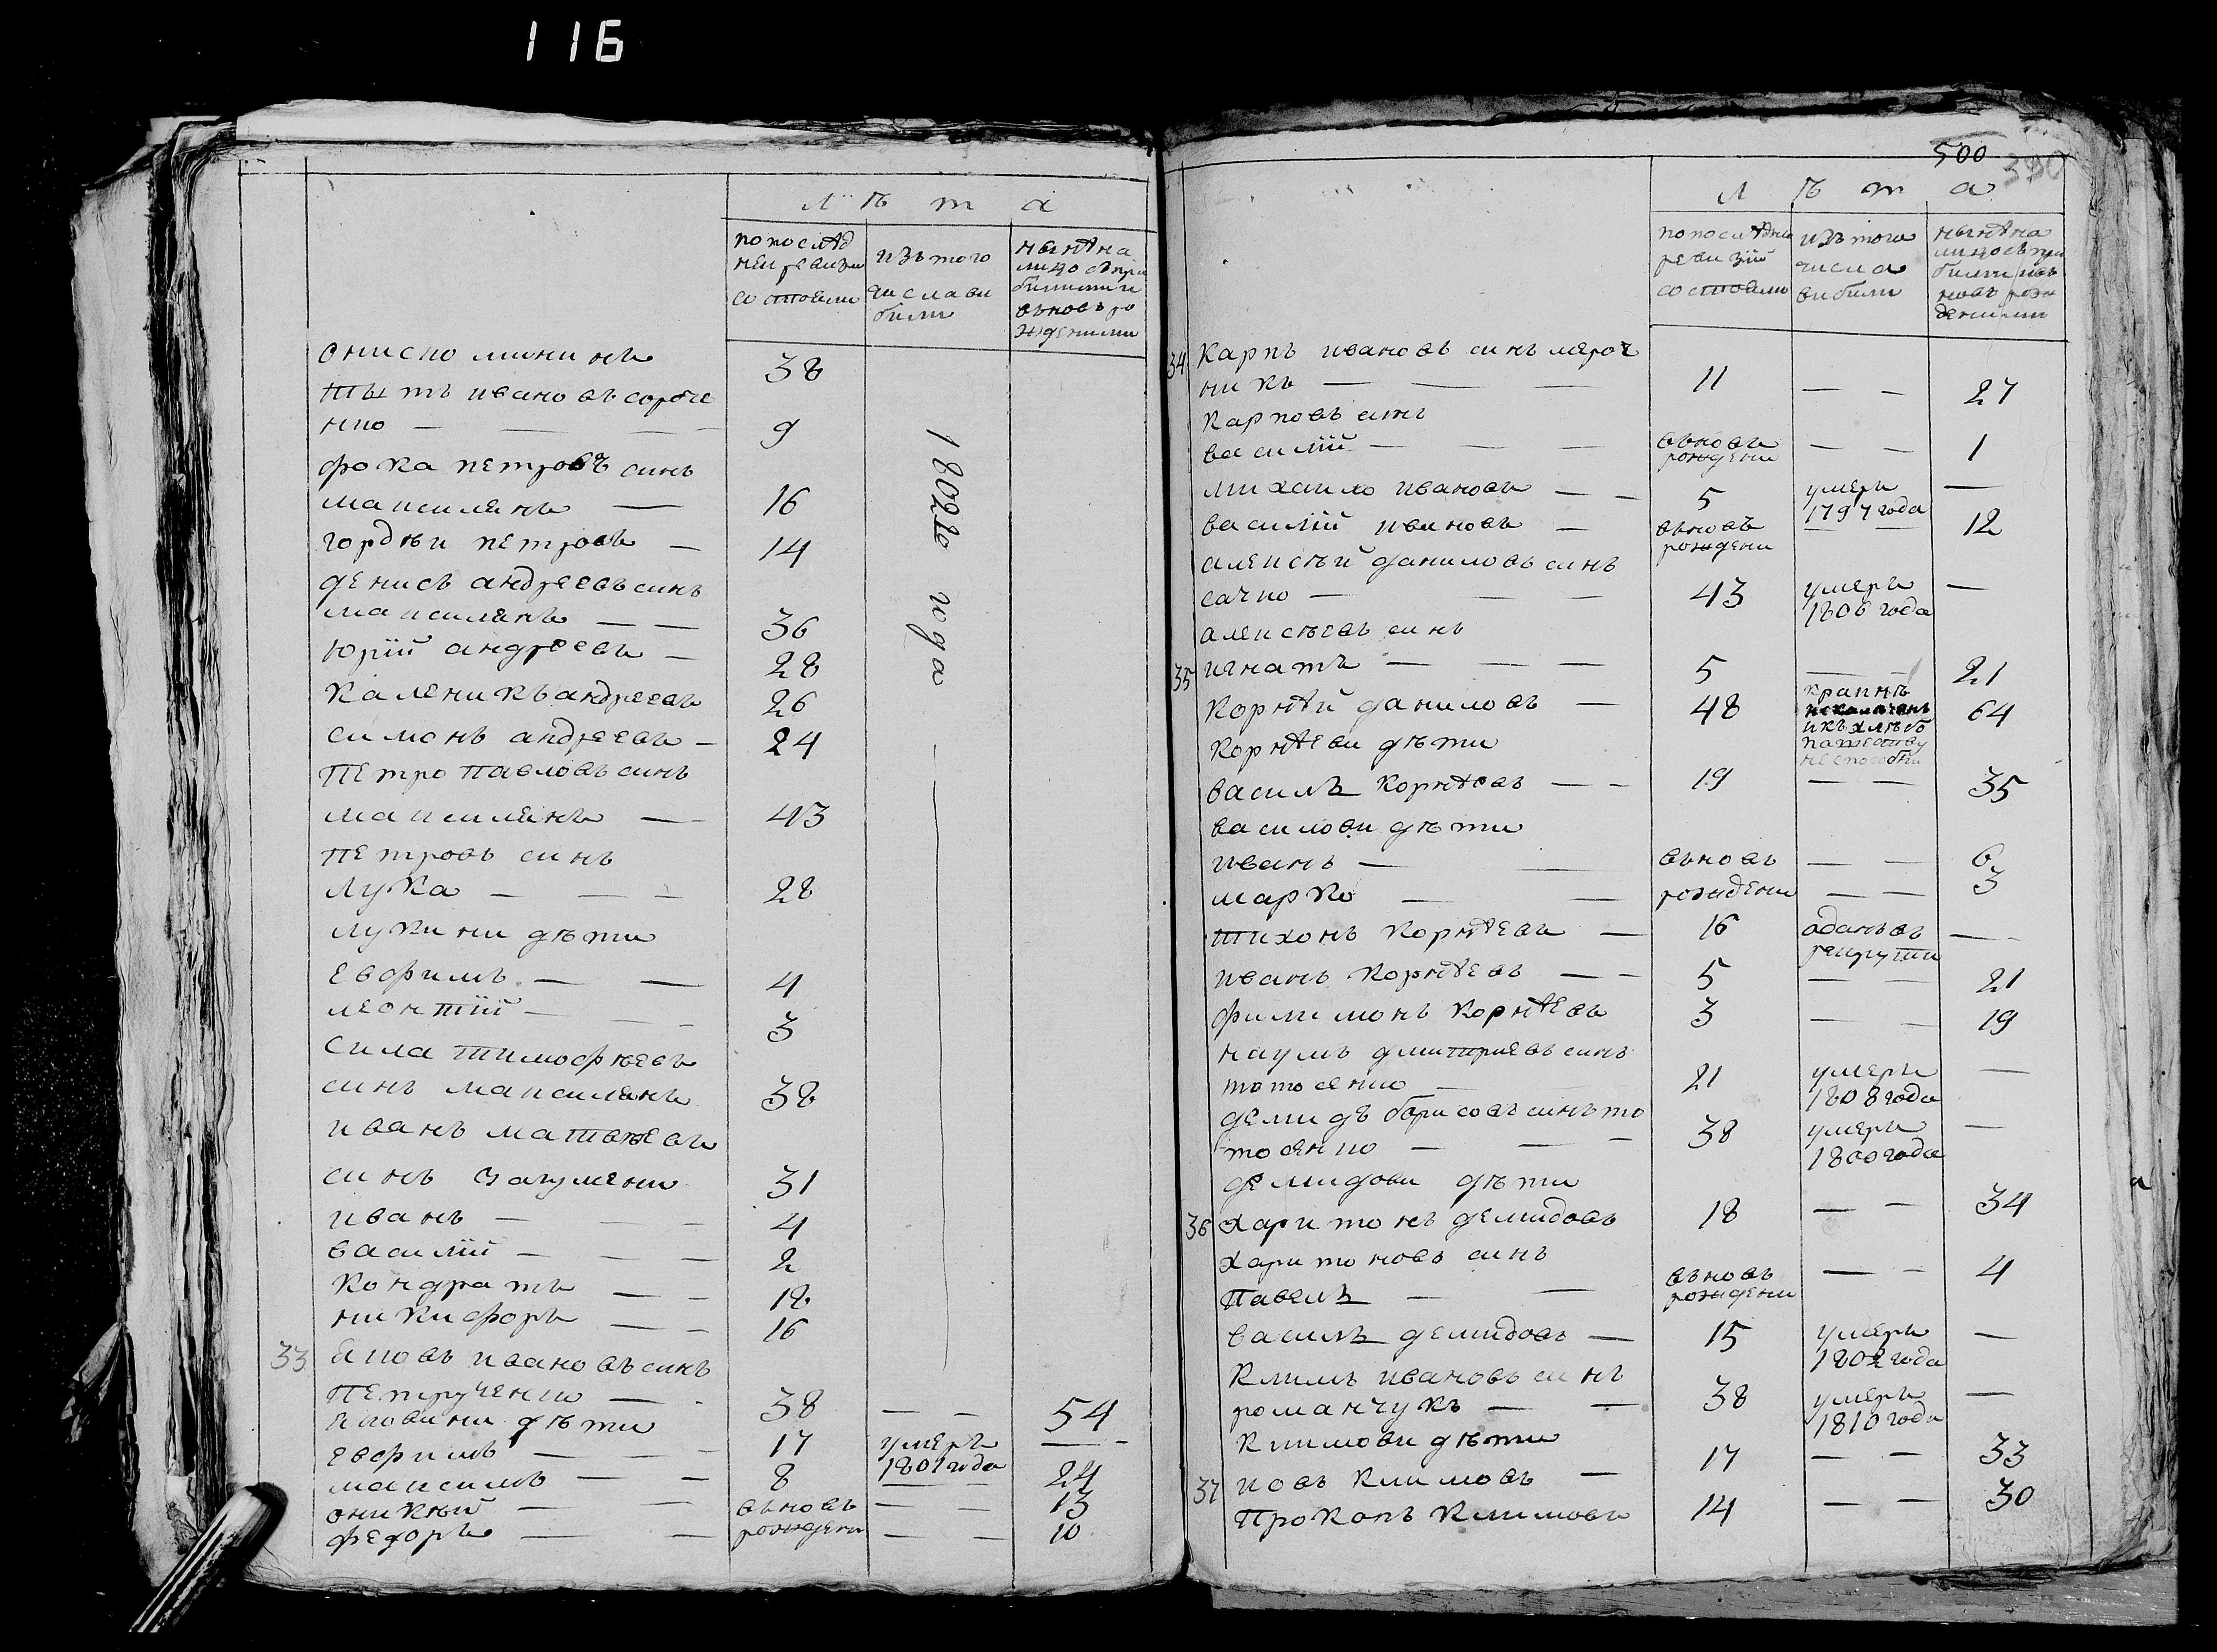 116
Л Ѣ т а
по послѣд
ней ревизии
состояли
изъ того
числа ви
били
нынѣ на
лицо съ при
билими и
вновь ро
жденими
ониско мининъ 38
Титъ ивановъ сороче
нко — — — 9
фока петровъ синъ
максимянъ — 16
гордѣи петровъ — 14
денисъ андреевъ синъ
максимянъ — — 36
Юрїй андреевъ — 28
Каленикъ андреевъ 26
симонъ андреевъ — 24
Петро павловъ синъ
максимянъ — 43
Петровъ синъ
лука — — — 28
лукини дѣти
Евфимъ — — 4
леонтїй — — 3
Сила тимофѣевъ
синъ максимянъ 38
иванъ матвѣевъ
синъ загумени 31
иванъ — — — 4
василїй — — — 2
Кондратъ — — 18
никифоръ — — 16
1802го года
33 яковъ ивановъ синъ
Петрученко — 38 — — 54
яковини дѣти
Евфимъ — — — 17 умеръ 1801 года —
максимъ — — 8 — — 24
оникїй — — вьновь — — 13
федоръ — — рождени — — 10
500
390
Л Ѣ т а
по послѣдне
ревизїй
состояли
изъ того
числа
вибили
нынѣ на
лицо съ при
билими и вь
новь рож
деними
34 Карпъ ивановъ синъ мероч
никъ — — — 11 — — 27
Карповъ синъ
василїй — — — вьновь рождени — — 1
михаило ивановъ — — 5 умеръ 1797 года —
василїй ивановъ — вьновь рождени — — 12
алексѣй даниловъ синъ
сачко — — — 43 умеръ 1806 года —
алексѣевъ синъ
35 игнатъ — — — 5 — — 21
Корнѣй даниловъ — 48 крайнѣ искалѣченъ и къ хлѣбопашеству неспособни 64
Корнѣеви дѣти
василь Корнѣевъ — — 19 — — 35
василови дѣти
иванъ — — вьновь — — 6
марко — — рождени — — 3
тихонъ Корнѣевъ — 16 аданъ въ рекрути —
иванъ Корнѣевъ — — 5 — — 21
филимонъ Корнѣевъ 3 — — 19
наумъ дмитриевъ синъ
тотоенко — 21 умеръ 1808 года —
демидъ борисовъ синъ то
тоенко — — — 38 умеръ 1800 года —
демидови дѣти
36 харитонъ демидовъ 18 — — 34
харитоновъ синъ
Павелъ — — вьновь рождени — — 4
василь демидовъ — 15 умеръ 1802 года —
Климъ ивановъ синъ
романчукъ — — 38 умеръ 1810 года —
климови дѣти
37 иовъ климовъ — 17 — — 33
Прокопъ климовъ 14 — — 30